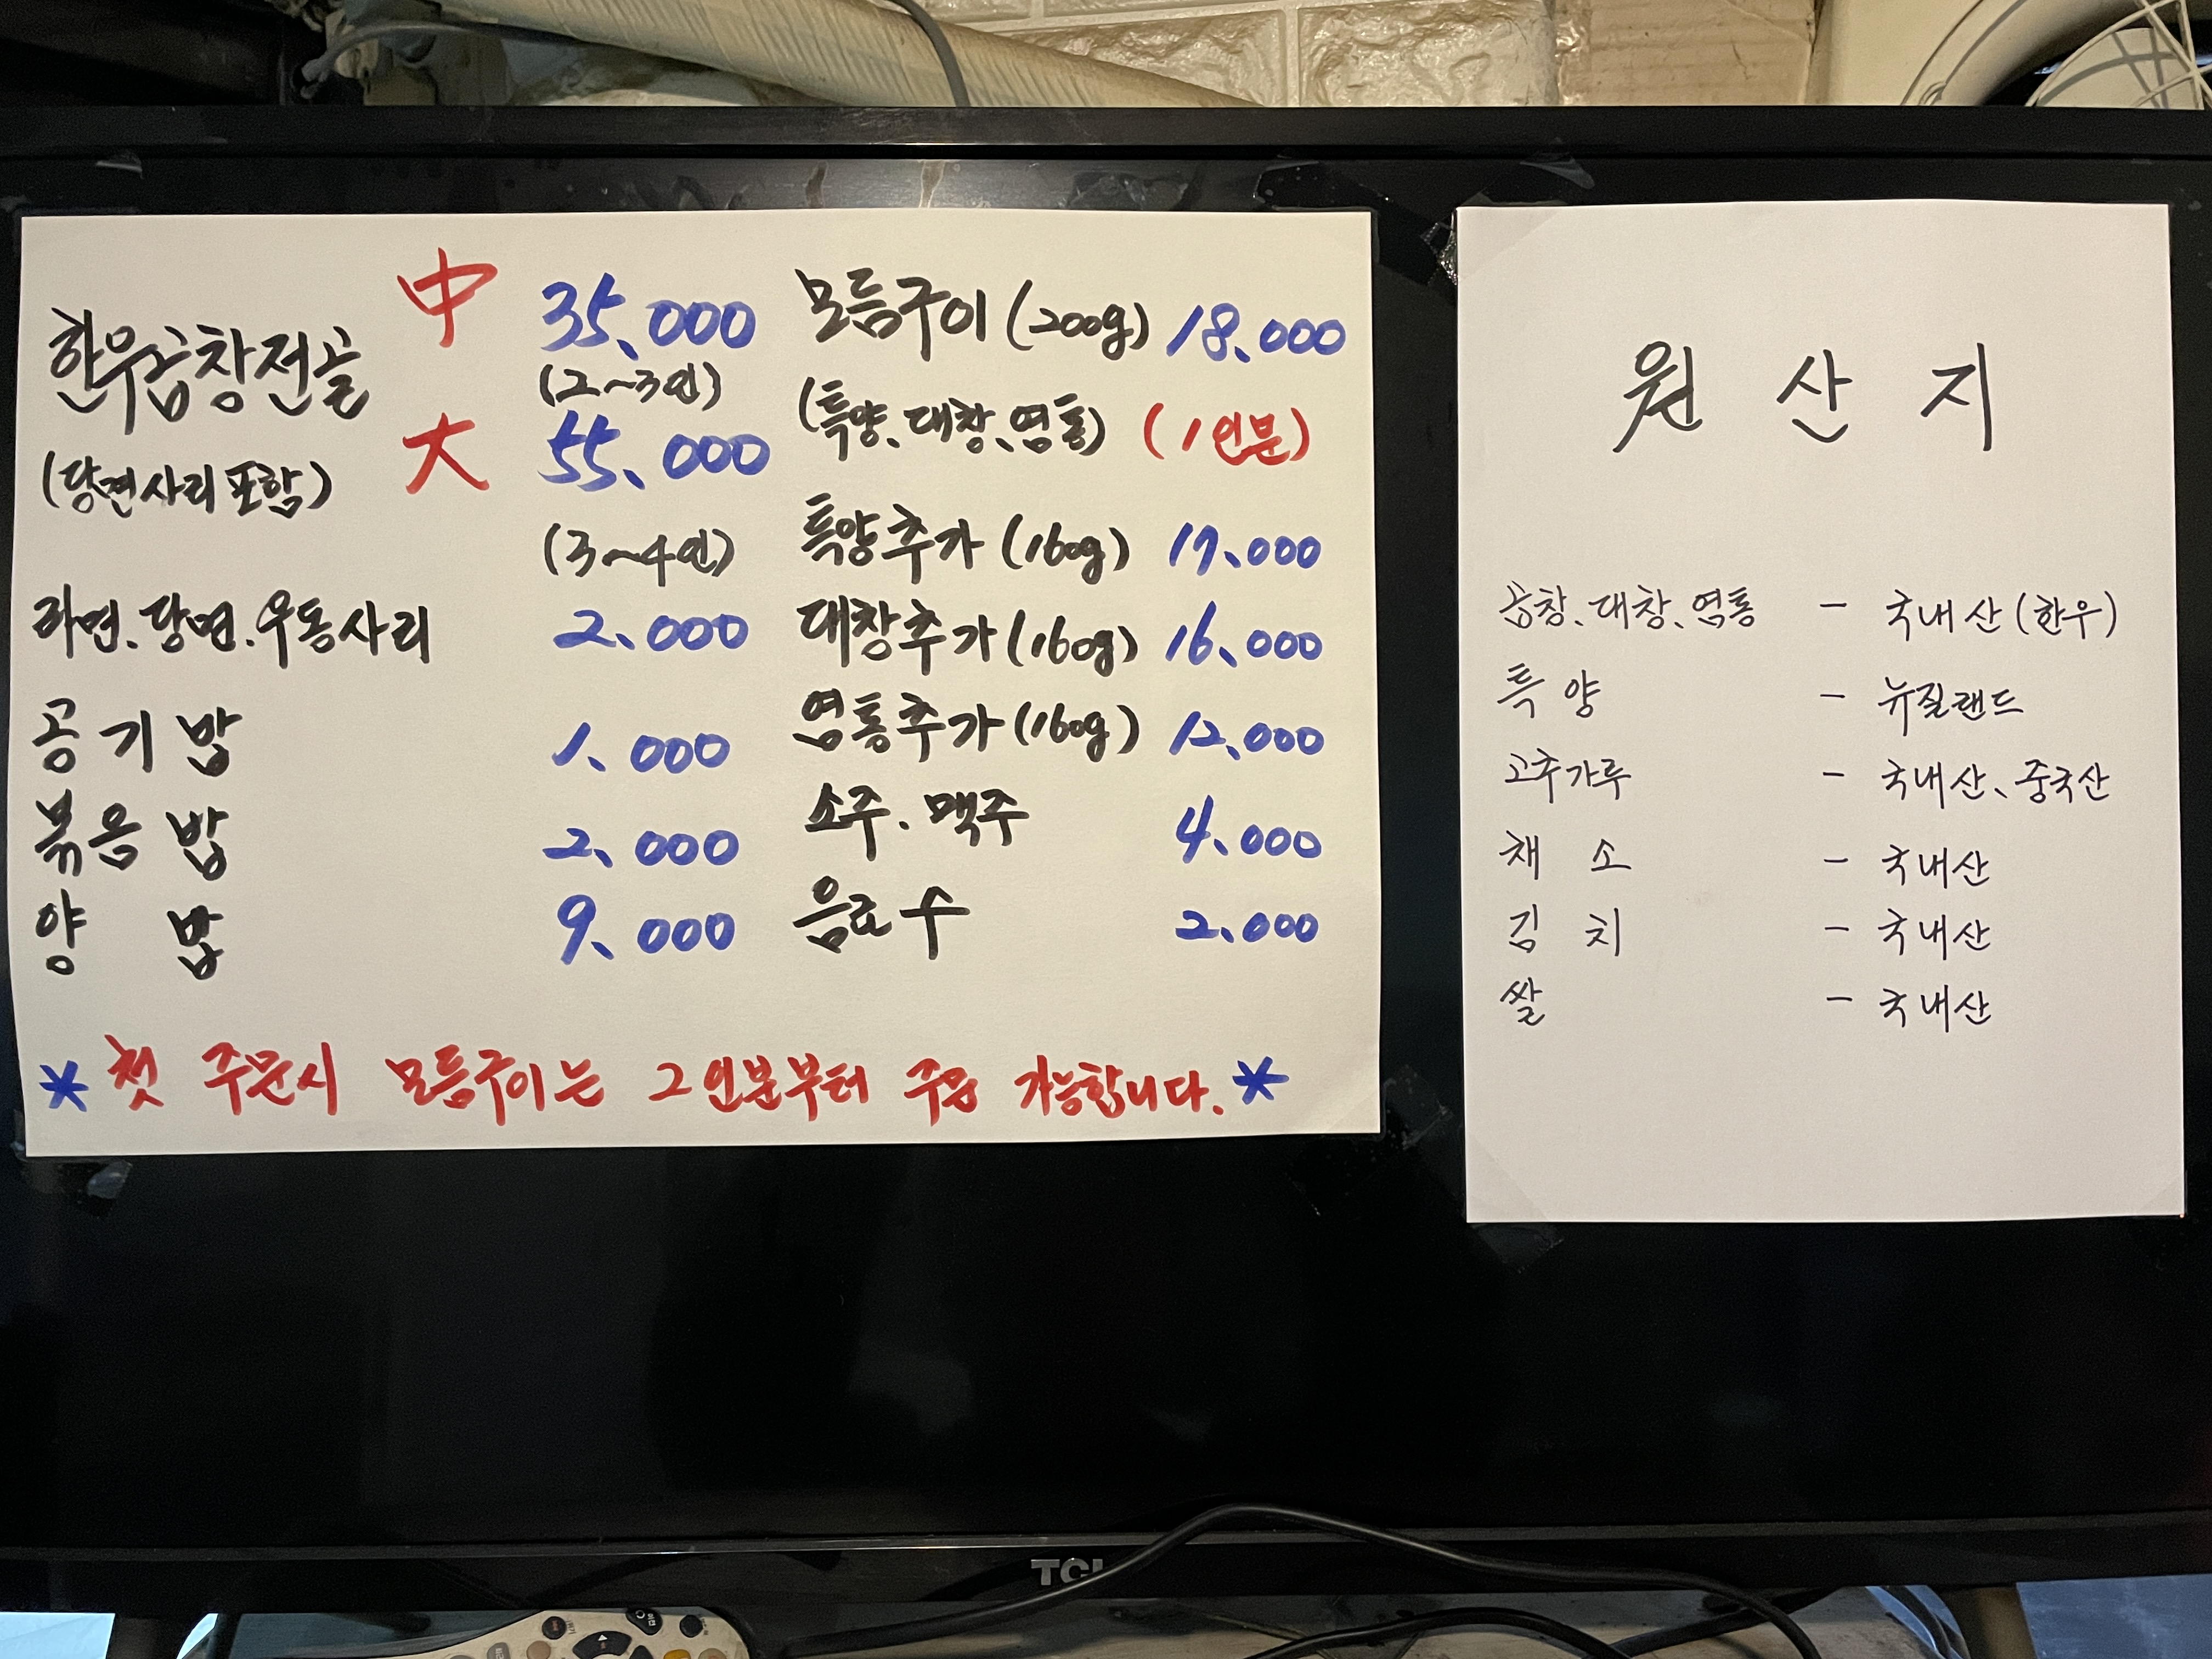 한우곱창전골
(당면사리 포함)
中 35,000
(2~3인)
大 55,000
(3~4인)
라면.당면.우동사리 2.000
공기밥 1.000
볶음밥 2.000
양 밥 9.000
모듬구이 (200g) 18.000
(특양、대창、염통) (1인분)
특양추가 (160g) 17.000
대창추가 (160g) 16.000
염통추가 (160g) 12.000
소주. 맥주 4.000
음료수 2.000
* 첫 주문시 모듬구이는 2인분부터 주문 가능합니다. *
원 산 지
곱창、대창、염통 - 국내산 (한우)
특 양 - 뉴질랜드
고추가루 - 국내산、중국산
채 소 - 국내산
김 치 - 국내산
쌀 - 국내산
TCL